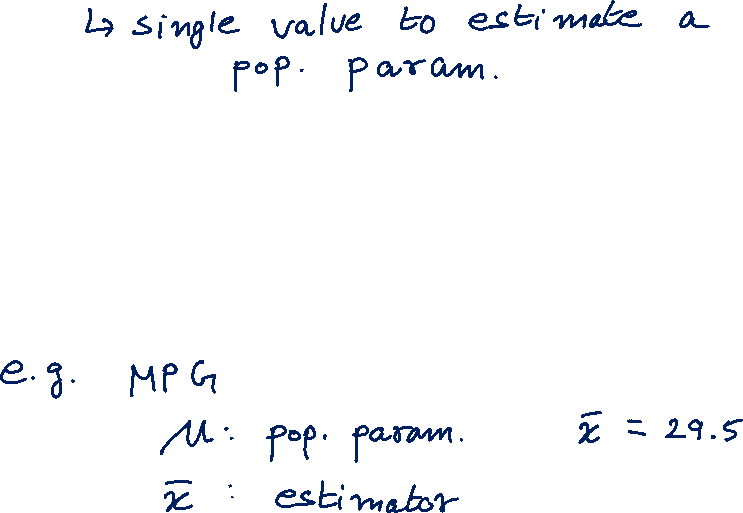 ↳ single value to estimate a
pop. param.
e.g. MPG
μ: pop. param. x̄ = 29.5
x̄ : estimator